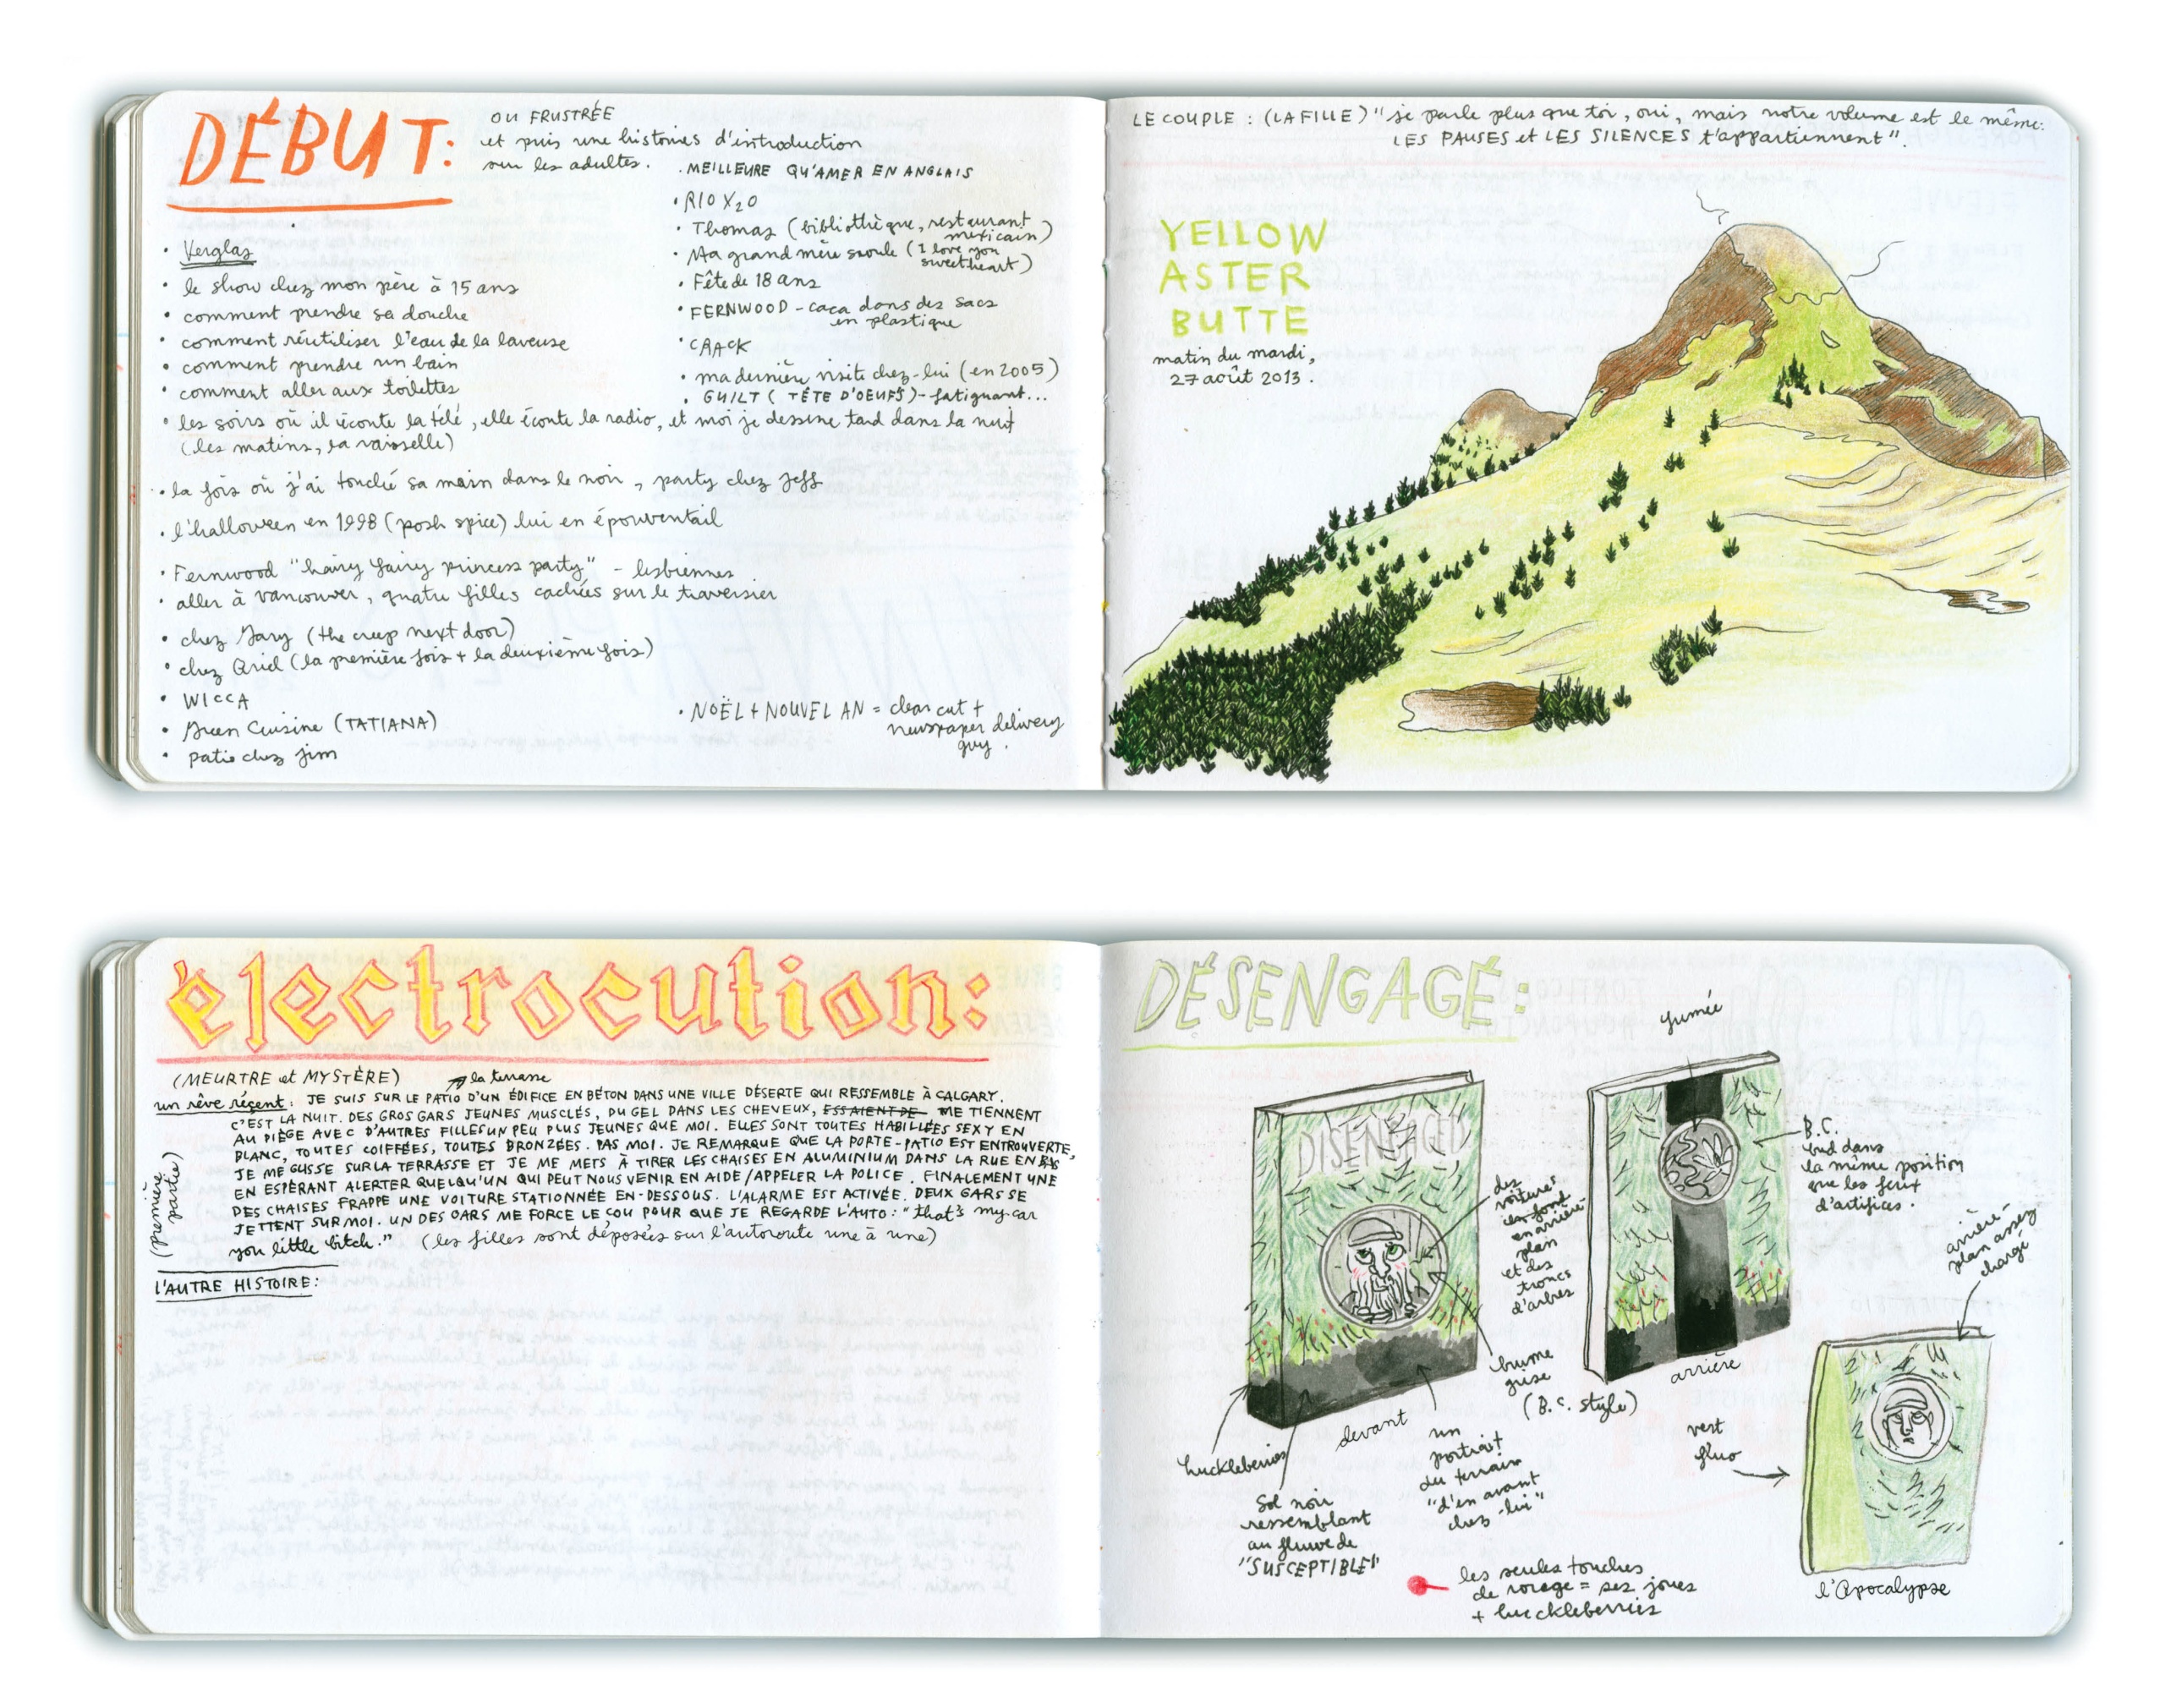 DÉBUT:
OU FRUSTRÉE
et puis une histoires d'introduction
sur les adultes.
• Verglas
• le show chez mon père à 15 ans
• comment prendre sa douche
• comment réutiliser l'eau de la laveuse
• comment prendre un bain
• comment aller aux toilettes
• les soirs où il écoute la télé, elle écoute la radio, et moi je dessine tard dans la nuit
(les matins, la vaisselle)
• la fois où j'ai touché sa main dans le noir, party chez Jeff
• l'halloween en 1998 (posh spice) lui en épouventail
• Fernwood "hairy fairy princess party" - lesbiennes
• aller à Vancouver, quatre filles cachées sur le traversier
• chez Gary (the creep next door)
• chez Ariel (la première fois + la deuxième fois)
• WICCA
• Green Cuisine (TATIANA)
• patio chez jim
• MEILLEURE QU'AMER EN ANGLAIS
• RIO X20
• Thomas (bibliothèque, restaurant
mexicain)
• Ma grand mère saoule (I love you
sweetheart)
• Fête de 18 ans
• FERNWOOD - caca dans des sacs
en plastique
• CRACK
• ma dernière visite chez-lui (en 2005)
• GUILT (TÊTE D'OEUFS) - fatiguant...
• NOËL + NOUVEL AN = clear cut +
newspaper delivery
guy.
LE COUPLE : (LA FILLE) "je parle plus que toi, oui, mais notre volume est le même:
LES PAUSES et LES SILENCES t'appartiennent".
YELLOW
ASTER
BUTTE
matin du mardi,
27 août 2013.
électrocution:
(MEURTRE et MYSTÈRE)
la terrasse
un rêve réçent: JE SUIS SUR LE PATIO D'UN ÉDIFICE EN BÉTON DANS UNE VILLE DÉSERTE QUI RESSEMBLE À CALGARY.
C'EST LA NUIT. DES GROS GARS JEUNES MUSCLÉS, DU GEL DANS LES CHEVEUX, ESSAIENT DE ME TIENNENT
AU PIÈGE AVEC D'AUTRES FILLES UN PEU PLUS JEUNES QUE MOI. ELLES SONT TOUTES HABILLÉES SEXY EN
BLANC, TOUTES COIFFÉES, TOUTES BRONZÉES. PAS MOI. JE REMARQUE QUE LA PORTE-PATIO EST ENTROUVERTE,
JE ME GLISSE SUR LA TERRASSE ET JE ME METS À TIRER LES CHAISES EN ALUMINIUM DANS LA RUE EN BAS
EN ESPÉRANT ALERTER QUELQU'UN QUI PEUT NOUS VENIR EN AIDE/APPELER LA POLICE. FINALEMENT UNE
DES CHAISES FRAPPE UNE VOITURE STATIONNÉE EN-DESSOUS. L'ALARME EST ACTIVÉE. DEUX GARS SE
JETTENT SUR MOI. UN DES GARS ME FORCE LE COU POUR QUE JE REGARDE L'AUTO: "that's my car
you little bitch." (les filles sont déposées sur l'autoroute une à une)
(première
partie)
L'AUTRE HISTOIRE:
DÉSENGAGÉ:
fumée
DISENGAGED
des
voitures
en arrière
plan
et des
troncs
d'arbres
B.C.
bud dans
la même position
que les feux
d'artifices.
arrière-
plan assez
chargé
brume
grise
(B.C. style)
arrière
devant
huckleberries
un
portrait
du terrain
"d'en avant
chez-lui"
vert
fluo
Sol noir
ressemblant
au fleuve de
"SUSCEPTIBLE"
les seules touches
de rouge = ses joues
+ huckleberries
l'Apocalypse